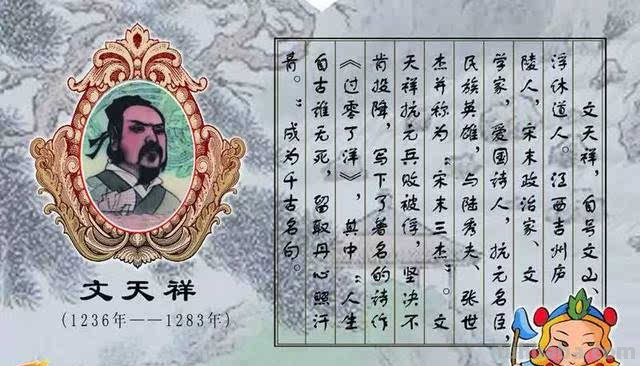 文天祥,自号文山、
浮休道人。江西吉州庐
陵人,宋末政治家、文
学家,爱国诗人,抗元名臣,
民族英雄,与陆秀夫、张世
杰并称为“宋末三杰”。文
天祥抗元兵败被俘,坚决不
肯投降,写下了著名的诗作
《过零了洋》,其中“人生
自古谁无死,留取丹心照汗
青。”成为千古名句。
文天祥
(1236年——1283年)